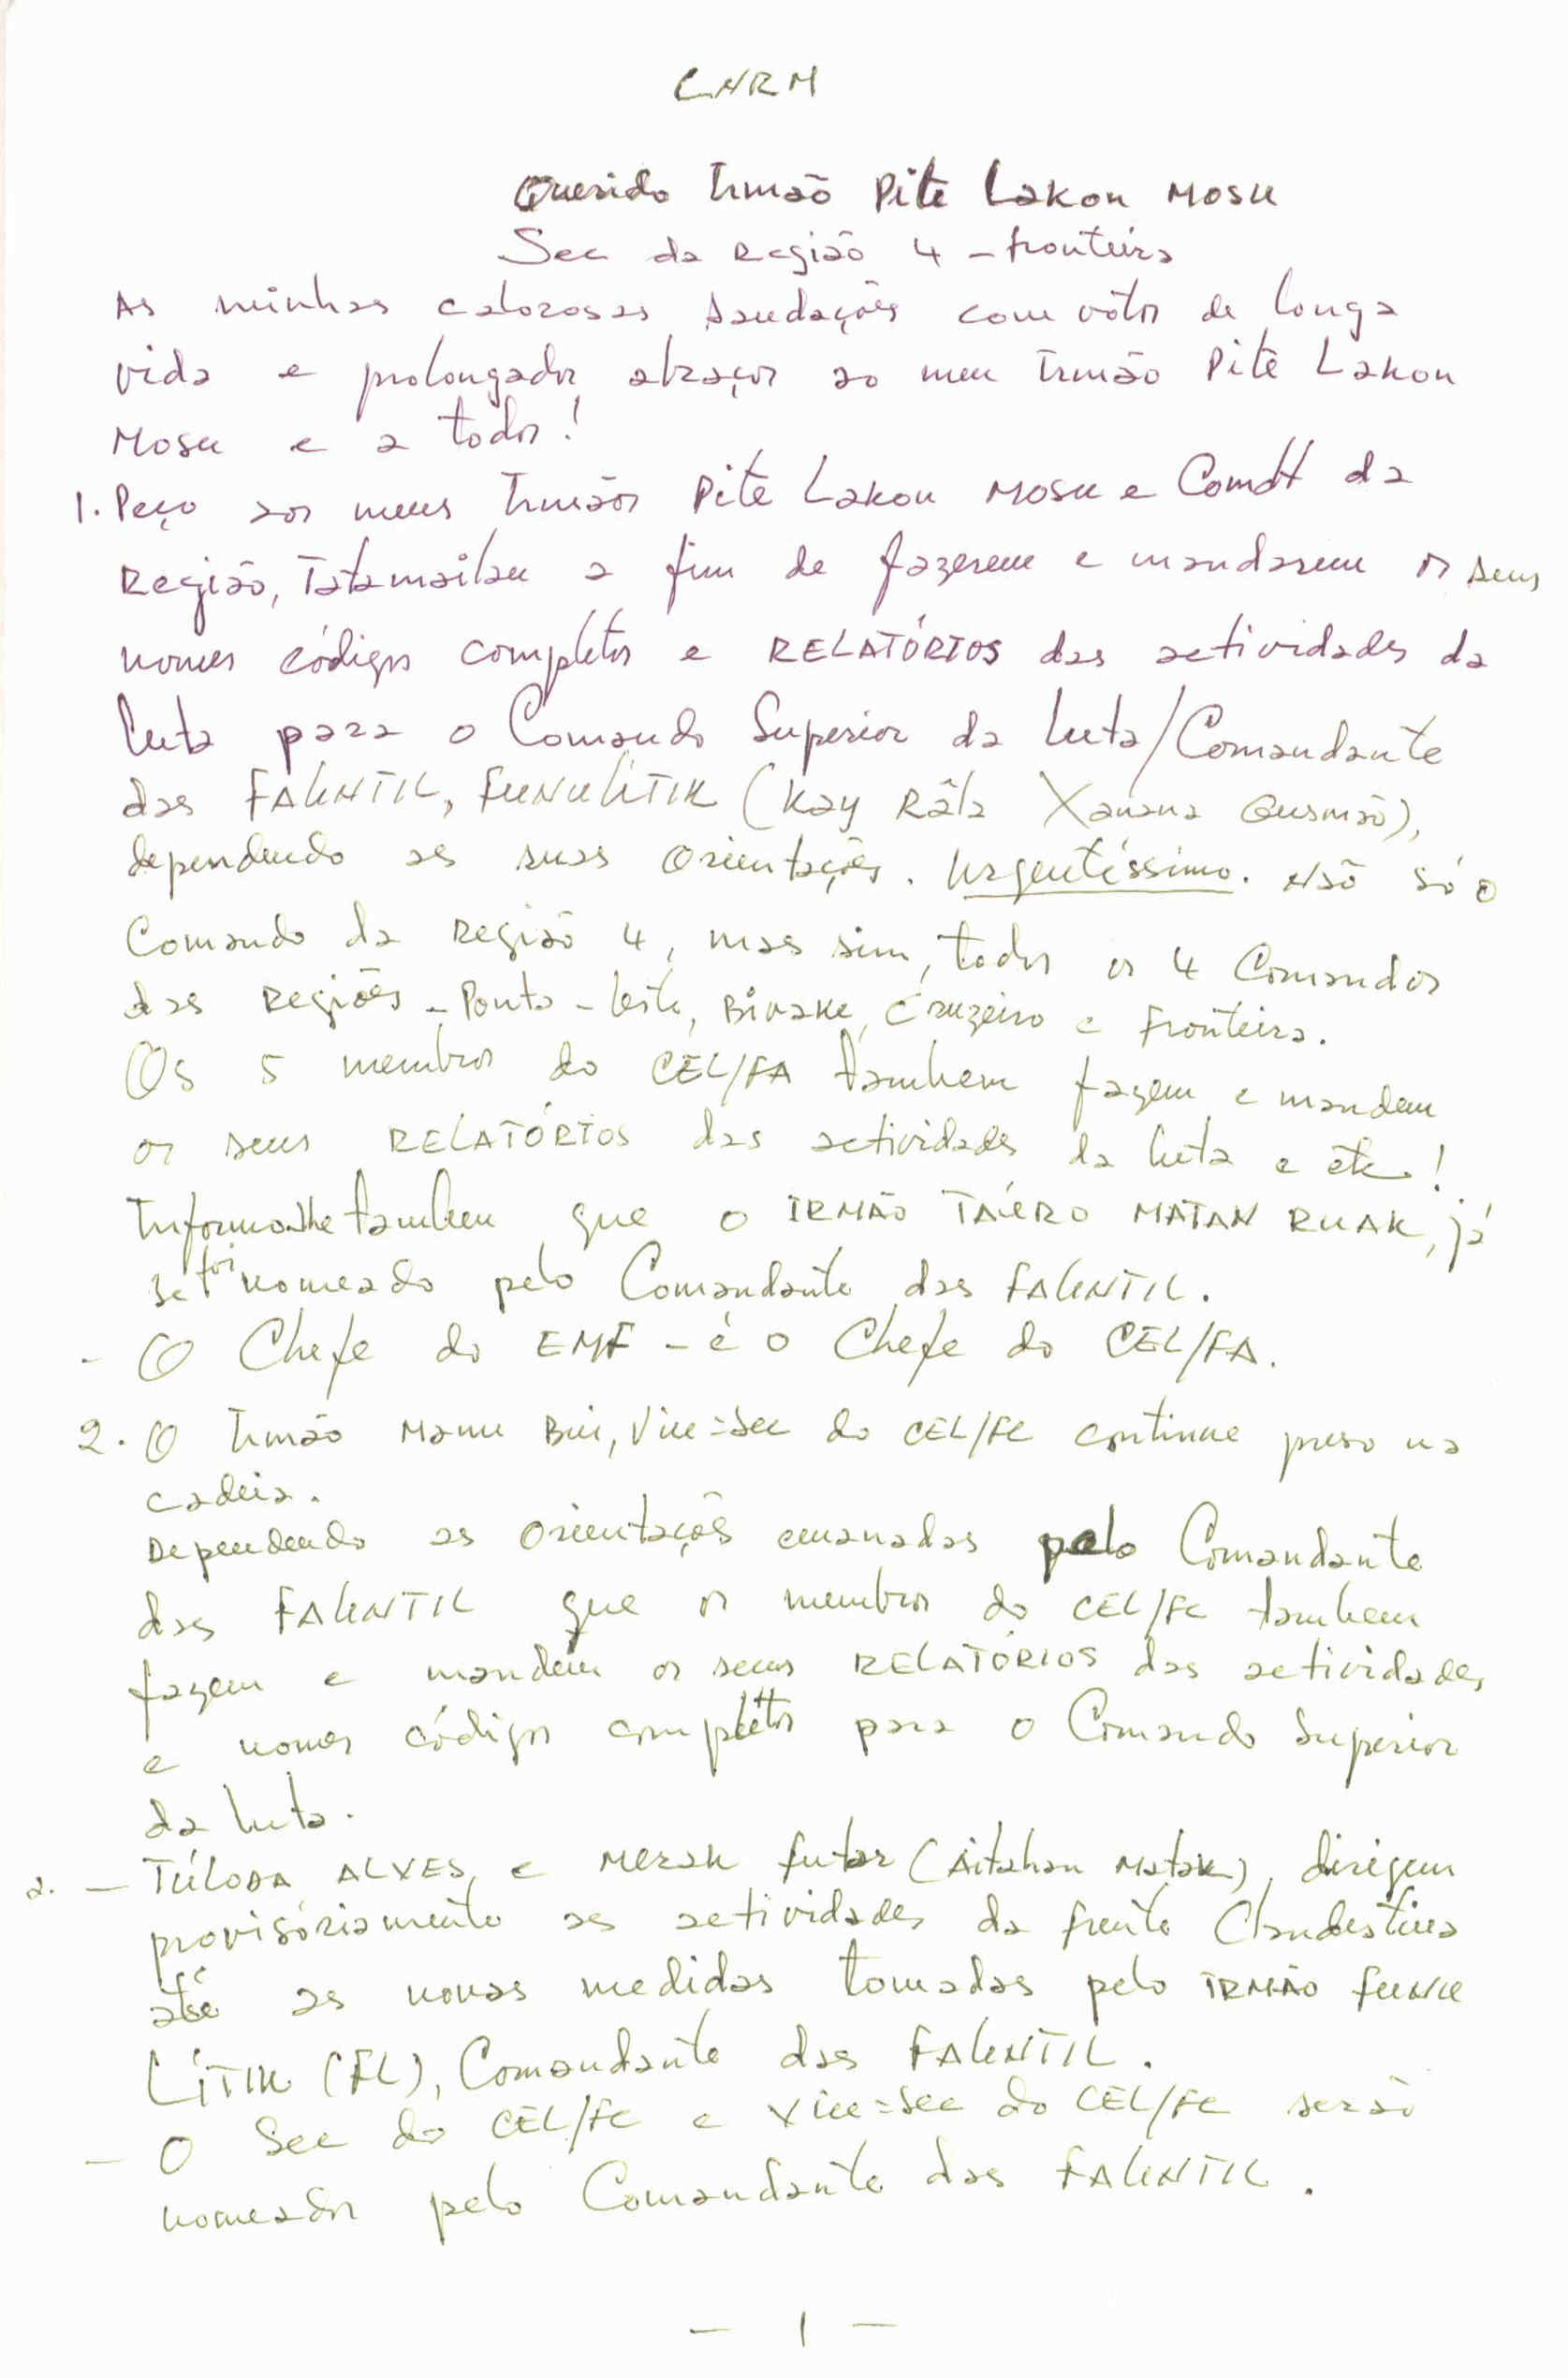 CNRM
Querido Irmão Pite Lakon Mosu
Sec da Região 4 - fronteira
As minhas calorosas saudações com votos de longa
vida e prolongados abraços ao meu Irmão Pite Lakon
Mosu e a todos!
1. Peço aos meus Irmãos Pite Lakon Mosu e Comdt da
Região, Tatamailau a fim de fazerem e mandarem os seus
nomes códigos completos e RELATÓRIOS das actividades da
luta para o Comando Superior da luta/Comandante
das FALINTIL, FUNULITIK (Kay Râla Xanana Gusmão),
dependendo as suas orientações. Urgentíssimo. Não só o
Comando da Região 4, mas sim, todos os 4 Comandos
das Regiões - Ponta-leste, Birake, Cruzeiro e Fronteira.
Os 5 membros do CEL/FA tambem fazem e mandem
os seus RELATÓRIOS das actividades da luta e etc!
Informo-lhe tambem que o IRMÃO TAÉRO MATAN RUAK, já
se foi nomeado pelo Comandante das FALINTIL.
- O Chefe do EMF - é o Chefe do CEL/FA.
2. O Irmão Manu Bui, Vice=Sec do CEL/FC continue preso na
cadeia.
Dependendo as orientações emanadas pelo Comandante
das FALINTIL que os membros do CEL/FC tambem
fazem e mandem os seus RELATÓRIOS das actividades
e nomes códigos completos para o Comando Superior
da luta.
a. - TÚLODA ALVES e Merak Futar (Aitahan Matak), dirigem
provisóriamente as actividades da frente Clandestina
até as novas medidas tomadas pelo IRMÃO FUNU
LÍTIK (FL), Comandante das FALINTIL.
- O Sec do CEL/FC e Vice=Sec do CEL/FC serão
nomeados pelo Comandante das FALINTIL.
- 1 -